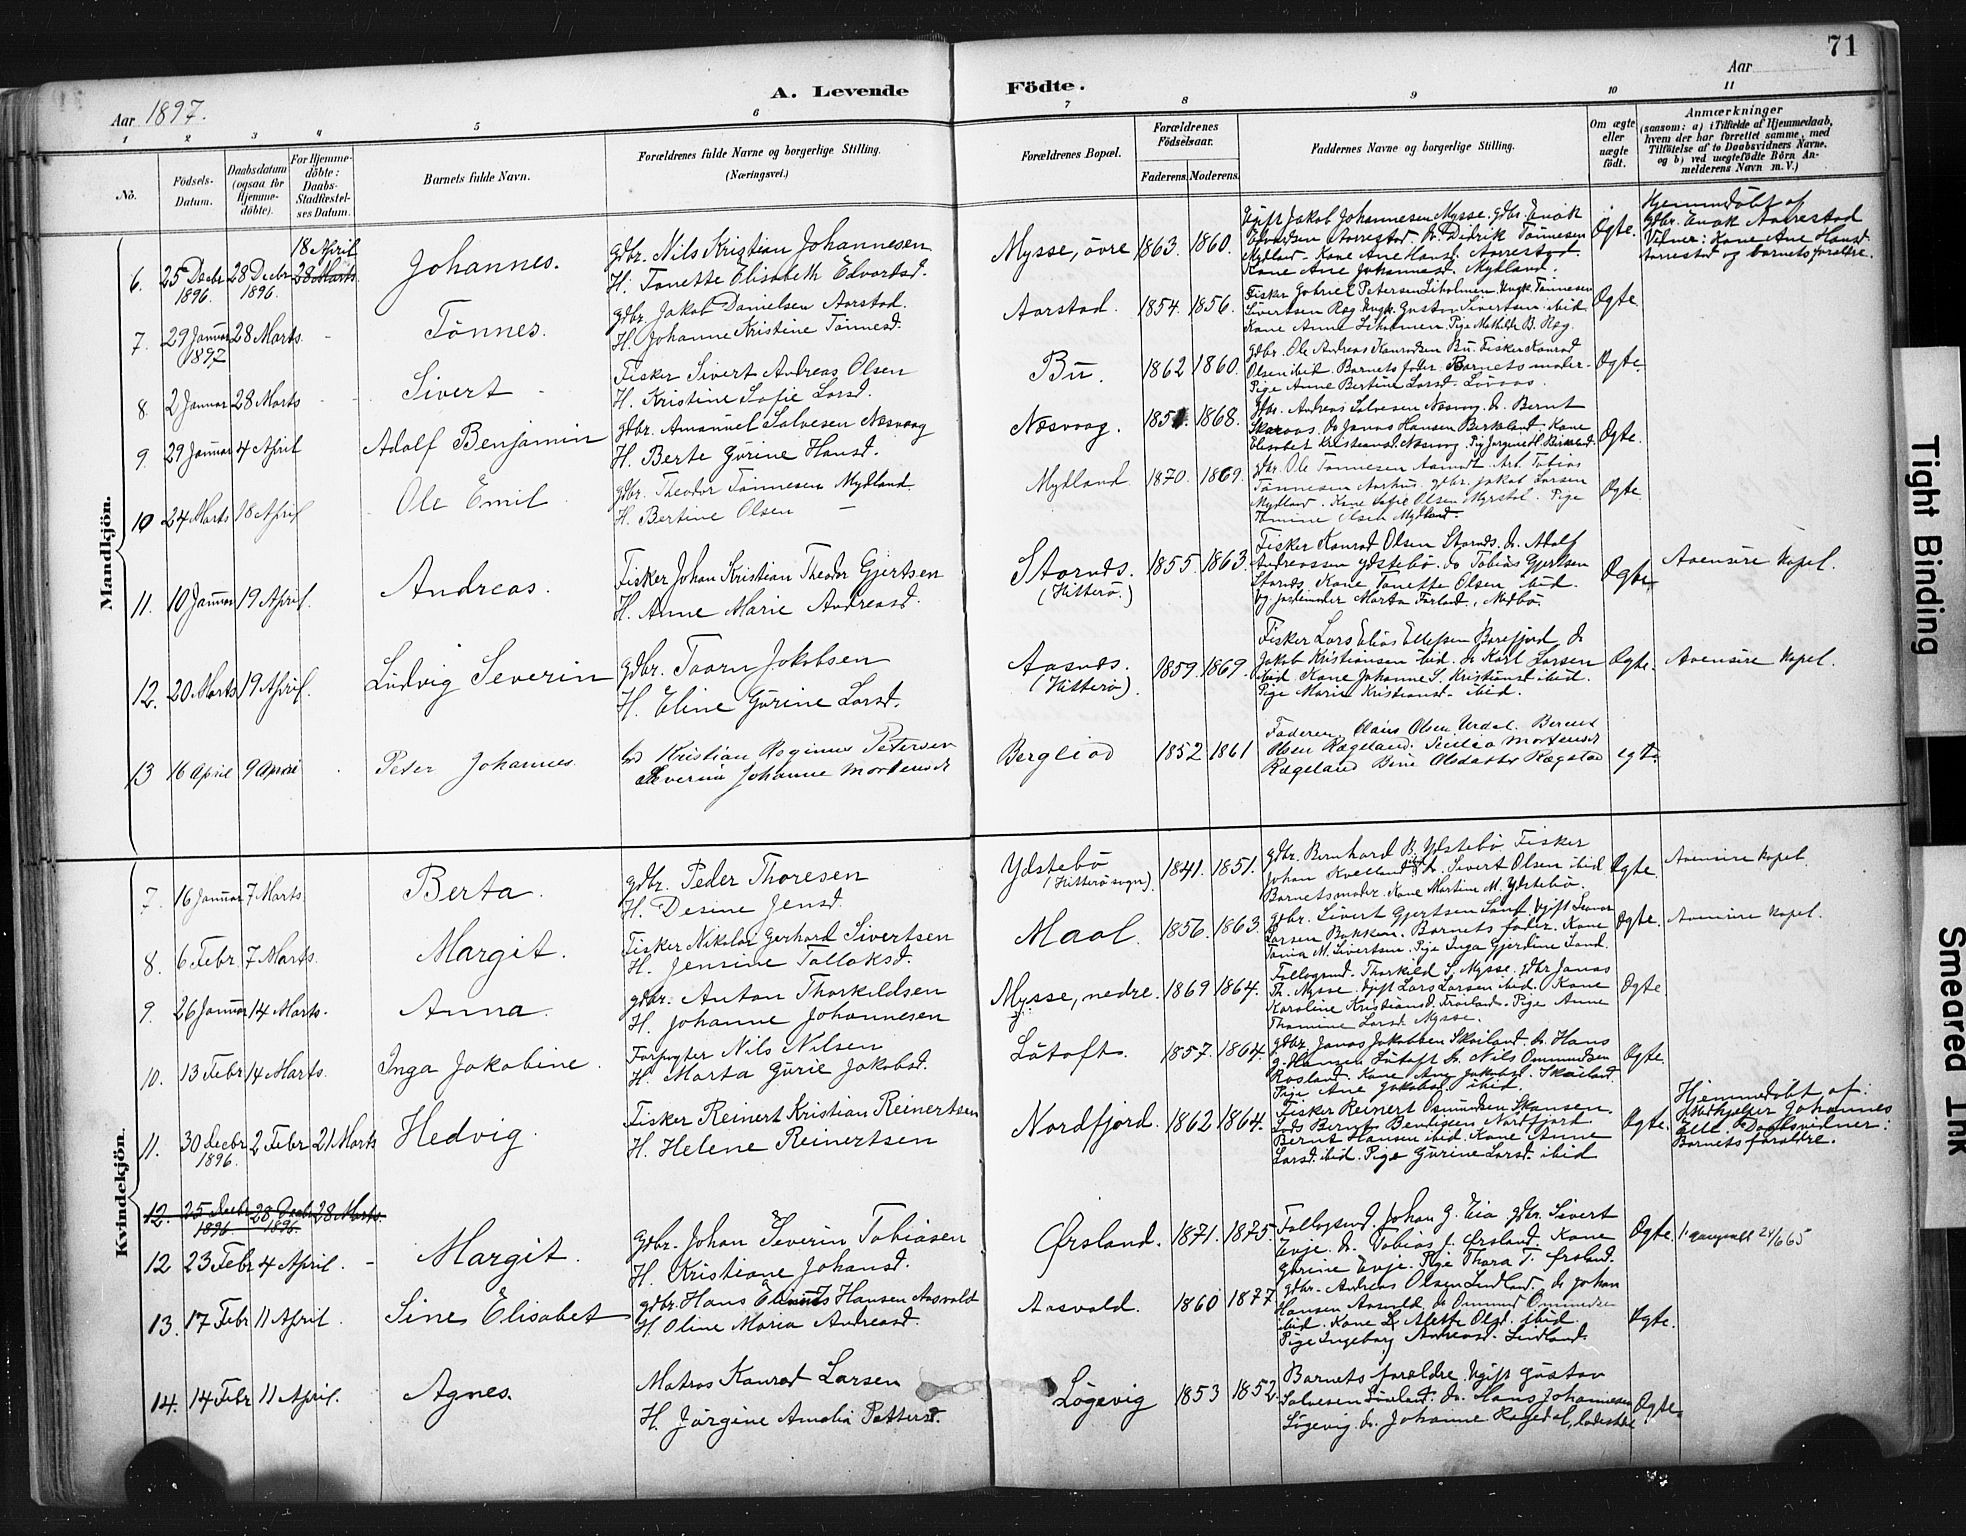 71
A. Levende Födte.
Aar 1897.
Aar
1 2 3 4 5 6 7 8 9 10 11
No.
Födsels-Datum.
Daabsdatum (ogsaa for Hjemme-döbte).
For Hjemme-döbte: Daabs-Stadfæstel-ses Datum.
Barnets fulde Navn.
Forældrenes fulde Navne og borgerlige Stilling.
(Næringsvei.)
Forældrenes Bopæl.
Forældrenes Födselsaar.
Faderens. Moderens.
Faddernes Navne og borgerlige Stilling.
Om ægte eller uægte födt.
Anmærkninger
(saasom: a) i Tilfælde af Hjemmedaab, hvem der har forrettet samme, med Tilföielse af to Daabsvidners Navne, og b) ved uegtefödte Börn An-melderens Navn m. V.)
Mandkjön.
6. 25 Decbr 1896. 28 Decbr 1896. 18 April 28 Marts Johannes. gdbr. Nils Kristian Johannesen
H. Tonette Elisabeth Edvardsd. Mysse, övre 1863. 1860. Ugift Jakob Johannesen Mysse. gdbr. Enok
Edvardsen Aarrestad. Do Didrik Tönnesen
Mydland. Kone Ane Hansd. Aarrestad.
Kone Ane Johannesd. Mydland. Ægte. Hjemmdöbt af
gdbr. Enok Aarrestad
Vidner: Kone Ane Hansd.
Aarrestad og barnets forældre.
7. 29 Januar 1897 28 Marts - Tönnes. gdbr. Jakob Danielsen Aarstad.
H. Johanne Kristine Tönnesd. Aarstad. 1854. 1856. Fisker Gabriel Petersen Liholmen. Ungk. Tönnes
Sivertsen Ræg. Ungk. Gustav Sivertsen ibid.
Kone Anna Liholmen. Pige Mathilde B. Ræg. Ægte
8. 2 Januar 28 Marts - Sivert - Fisker Sivert Andreas Olsen
H. Kristine Sofie Larsd. Bu. 1862 1860. gdbr. Ole Andreas Konradsen Bu. Fisker Konrad
Olsen ibid. Barnets fader. Barnets moder.
Pige Anne Bertine Larsd. Lövaas. Ægte
9. 29 Januar 4 April Adolf Benjamin gdbr. Amanuel Salvesen Næsvaag
H. Berte Gurine Hansd. Næsvaag. 1868. gdbr. Andreas Salvesen Næsvaag. do. Bernt
Skaraas. Do Jonas Hansen Birkeland. Kone
Elisabet Kristiansd. Næsvaag. Ægte.
10 24 Marts 18 April Ole Emil gdbr. Theodor Tönnesen Mydland
H. Bertine Olsen - Mydland 1870. 1869. gdbr. Ole Tönnesen Arb. Tobias
Tönnesen Aarhus. gdbr. Jakob Larsen
Mydland. Kone Sofie Olsen Myrstøl. Pige
Tomine Olsen Mydland. Ægte
11. 10 Januar 19 April. Andreas. Fisker Johan Kristian Theodor Gjertsen
H. Anne Marie Andreasd. Stornæs. (Hitterö.) 1855. 1863. Fisker Konrad Olsen Stornæs. do. Adolf
Andreassen Ydstebö. do Tobias Gjertsen
Stornæs. Kone Tonette Olsen ibid.
Marta Farland. Ægte. Aaensire Kapel.
12. 20 Marts 19 April. Ludvig Severin gdbr. Taarn Jakobsen
H. Eline Gurine Larsd. Aasnæs. (Hitterö). 1859. 1869. Fisker Lars Elias Ellefsen Borefjord do
Jakob Kristiansen ibid. do Karl Larsen
ibid Kone Johanne S. Kristiansd. ibid.
Pige Marie Kristiansd. ibid. Ægte. Aaensire Kapel.
13 16 April 9 April Peder Johannes Kristian Reginius Petersen
Severine Johanne Mortensdt Bergliod 1852 1861 Faderen, Claus Olsen Urdal. Berent
Olsen Rægeland. Mortensdt
Rægeland Olsdatter Rægstad egte.
Kvindekjön.
7. 16 Januar 7 Marts Berta. gdbr. Peder Thoresen
H. Desine Jensd. Ydstebö (Hitterö sogn). 1841. 1851. gdbr. Bernhard B. Ydstebö. Fisker
Johan Kvelland ibid. do. Sivert Olsen ibid
Barnets moder. Kone Martine M. Ydstebö. Ægte. Aaensire Kapel.
8. 6 Febr. 7 Marts. Margit. Fisker Nikolai Gerhard Sivertsen
H. Jensine Tallaksd. Maal. 1856. 1863. gdbr. Sivert Gjertsen Sand. Ugift
Larsen Bakken. Barnets fader. Kone
Tonia M. Sivertsen. Pige Inga Gjerdine Sand. Ægte. Aaensire Kapel.
9. 26 Januar 14 Marts. Anna. gdbr. Anton Thorkildsen
H. Johanne Johannesen Mysse, nedre. 1869 1864. Thorkild S. Mysse. gdbr Jonas
Th. Mysse. Ugift Lars Larsen ibid. Kone
Karoline Kristiansd. Fröiland. Pige Anne
Thomine Larsd. Mysse. Ægte
10. 13 Febr. 14 Marts. Inga Jakobine. Forpagter Nils Nilsen
H. Marta Gurie Jakobsd. Låtoft. 1857. 1864. gdbr. Jonas Jakobsen Skailand. do. Hans
G. Hansen Låtoft do. Nils Osmundsen
Rosland. Kone Ane Jakobsd. Skailand.
Pige Ane Jakobsd. ibid. Ægte.
11. 30 Decbr 1896. 2 Febr. 21 Marts Hedvig. Fisker Reinert Kristian Reinertsen
H. Helene Reinertsen Nordfjord. 1862 1864. Fisker Reinert Osmundsen Skansen.
Bernt Bendigsen Nordfjord.
Bernt Hansen ibid. Kone Anne
Larsd. ibid. Pige Gurine Larsd. ibid Ægte. Hjemmedöbt af:
Johannes
Daabsvidner:
Barnets forældre.
12. 25 Decbr 1896 28 Decbr 1896. 28 Marts.
12 23 Febr 4 April. - Margit. gdbr. Johan Severin Tobiasen
H. Kristiane Johansd. Ørsland. 1871. 1875. Johan G. Eia. gdbr. Sivert
Evje. do. Tobias J. Ørsland. Kone
Gurine Evje. Pige Thara T. Ørsland. Ægte. 24/6 65
13. 17 Febr 11 April. Sine Elisabet gdbr. Hans Hansen Aasvald
H. Oline Maria Andreasd. Aasvald. 1860 1877 gdbr. Andreas Olsen Lindland. do Johan
Hansen Aasvald. do Ommund Ommundsen
ibid. Kone Alette Olsd. ibid.
Pige Ingeborg Andreasd. Lindland. Ægte.
14. 14 Febr 11 April. Agnes. Matros Konrad Larsen
H. Jörgine Amalia Pettersd. Lögevig 1853 1852. Barnets forældre. Ugift Gustav
Salvesen do. Hans Johannesen
Lögevig. do. Johanne Rægedal, ladested Ægte.
Tight Binding
Smeared Ink